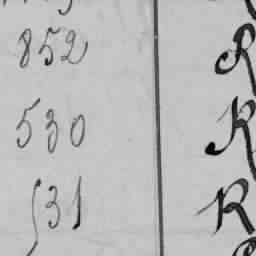 852 R
530 R
531 R